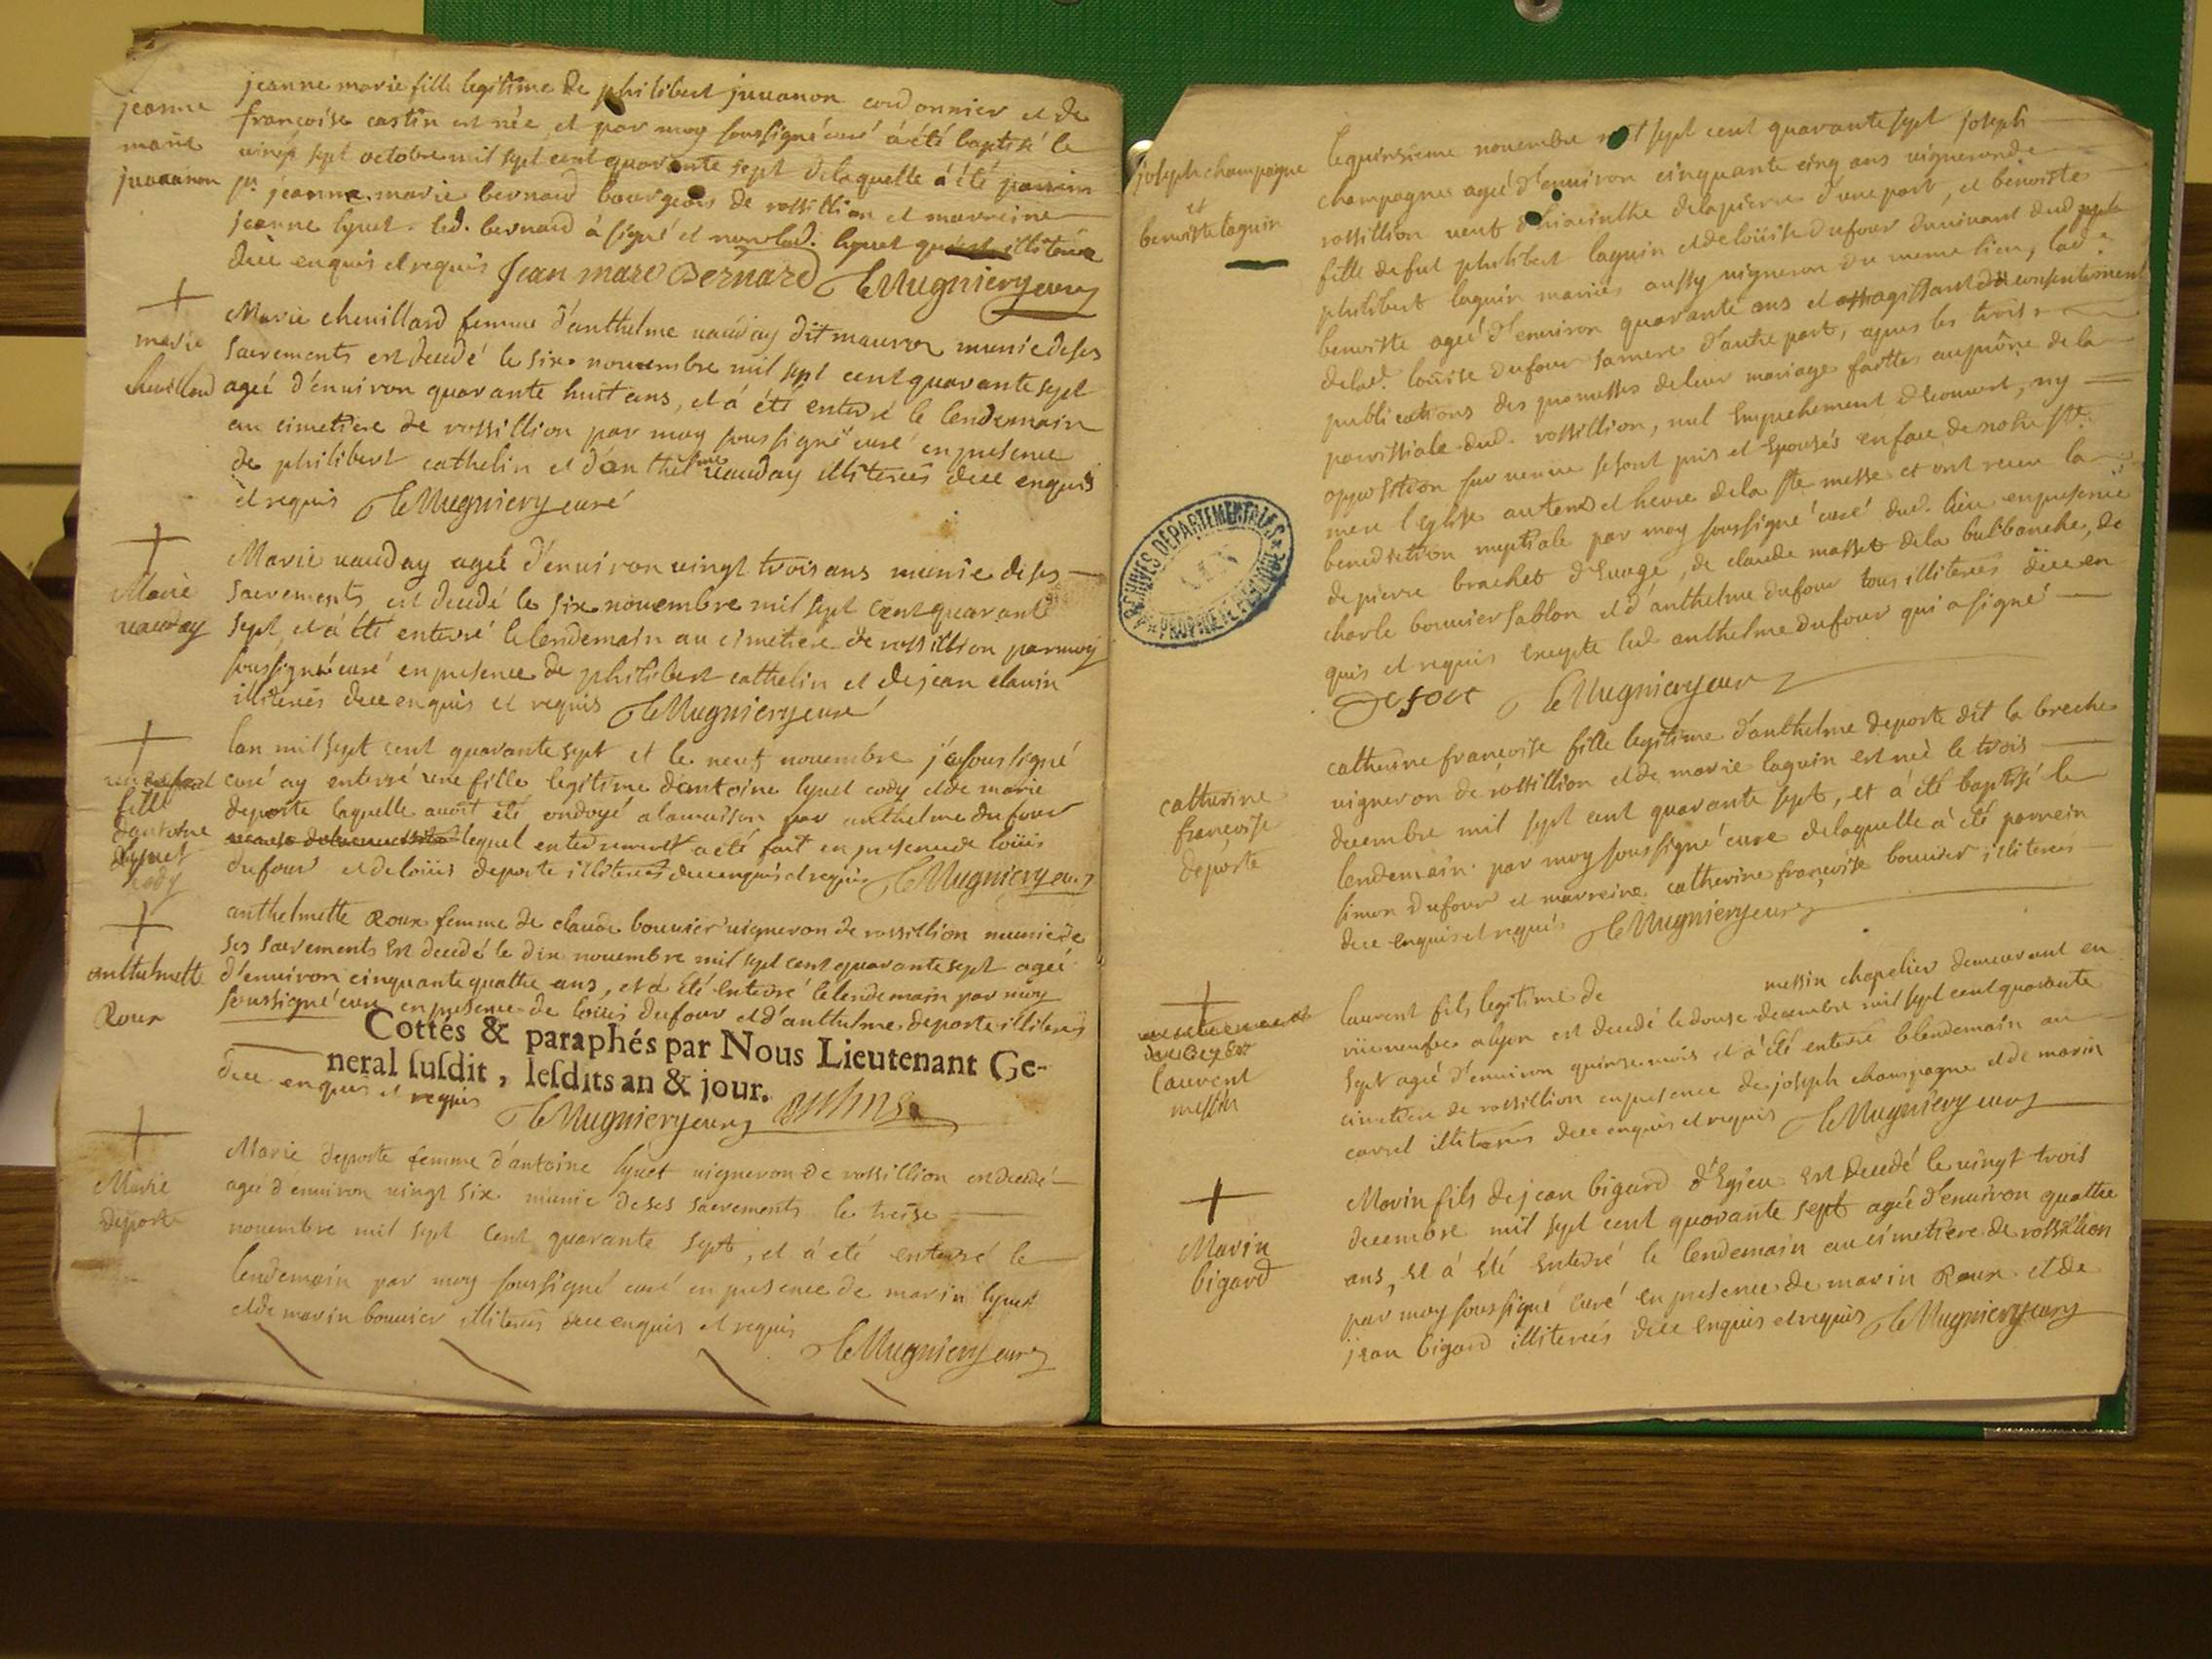 jeanne
marie
juuanon
jeanne marie fille legitime de philibert juuanon cordonnier et de
francoise castin est née et par moy soussigné curé à été baptisé le
vingt sept octobre mil sept cent quarante sept delaquelle à été parrein
sr. jeanne marie bernard bourgeois de rossillion et marreine
jeanne lyuet. led. bernard à signé et non lad. lyuet illiterée
dece enquis et requis Jean marc Bernard LeMugniery curé
marie
cheuillard
Marie cheuillard femme d'anthelme uauday dit mauron munie de ses
sacrements est decedé le six nouembre mil sept cent quarante sept
ageé d'enuiron quarante huit ans, et à été enterré le lendemain
au cimetiere de rossillion par moy soussigné curé en presence
de philibert cathelin et d'anthelme uauday illiterés dece enquis
et requis LeMugniery curé
Marie
uauday
Marie uauday ageé d'enuiron uingt trois ans munie de ses
sacrements est decedé le six nouembre mil sept cent quarante
sept, et à été enterré le lendemain au cimetiere de rossillion par moy
soussigné curé en presence de philibert cathelin et de jean clauin
illiterés dece enquis et requis LeMugniery curé
fille
d'antoine
lyuet
cody
lan mil sept cent quarante sept et le neuf nouembre j'ay soussigné
curé ay enterré une fille legitime d'antoine lyuet cody et de marie
deporte laquelle auoit été ondoyé a la maison par anthelme dufour
lequel enterrement a été fait en presence de loüis
dufour et de loüis deporte illiterés dece enquis et requis LeMugniery curé
anthelmette
Roux
anthelmette Roux femme de claude bouuier uigneron de rossillion munie de
ses sacrements est decedé le dix nouembre mil sept cent quarante sept ageé
d'enuiron cinquante quattre ans, et à été enterré le lendemain par moy
soussigné curé en presence de loüis dufour et d'anthelme deporte illiterés
Cottés & paraphés par Nous Lieutenant Ge-
neral susdit, lesdits an & jour.
dece enquis et requis
LeMugniery curé
Marie
deporte
Marie deporte femme d'antoine lyuet uigneron de rossillion est decedé
ageé d'enuiron uingt six munie de ses sacrements le treise
nouembre mil sept cent quarante sept, et à été enterré le
lendemain par moy soussigné curé en presence de marin lyuet
et de marin bouuier illiterés dece enquis et requis
LeMugniery curé
joseph champagne
et
benoiste laguin
le quinsieme nouembre mil sept cent quarante sept joseph
champagne ageé d'enuiron cinquante cinq ans uigneron de
rossillion ueuf d'hiacinthe delapierre d'une part, et benoiste
fille de fut philibert laguin et de loüise dufour du uiuant dud
philibert laguin mariés aussy uigneron du meme lieu, lad.
benoiste ageé d'enuiron quarante ans et agissant du consentement
delad. loüise dufour sa mere d'autre part, apres les trois
publications des promesses de leur mariage faittes au prône de la
parrissiale dud. rossillion, nul empechement decouuert, ny
opposition suruenue se sont pris et epousés en face de notre ste.
mere l'eglise au tems et heure de la ste messe et ont receu la
benediction nuptiale par moy soussigné curé dud. lieu en presence
de pierre brachet d'euoge, de claude masset de la burbanche, de
charle bouuier sablon et d'anthelme dufour tous illiterés dece en
quis et requis excepté led anthelme dufour qui a signé
LeMugniery curé
ARCHIVES DEPARTEMENTALES
AIN
PROPRIETE PUBLIQUE
catherine
francoise
deporte
catherine francoise fille legitime d'anthelme deporte dit la breche
uigneron de rossillion et de marie laguin est neé le trois
decembre mil sept cent quarante sept, et à été baptisé le
lendemain par moy soussigné curé delaquelle à été parrein
simon dufour et marreine catherine francoise bouuier illiterés
dece enquis et requis LeMugniery curé
laurent
messin
laurent fils legitime de messin chapelier demeurant en
rüe neufue a lyon est decedé le douse decembre mil sept cent quarante
sept ageé d'enuiron quinse mois et à été enterré le lendemain au
cimetiere de rossillion en presence de joseph champagne et de marin
carrel illiterés dece enquis et requis LeMugniery curé
Marin
bigard
Marin fils de jean bigard d'Egieu est decedé le uingt trois
decembre mil sept cent quarante sept ageé d'enuiron quattre
ans, et à été enterré le lendemain au cimetiere de rossillion
par moy soussigné curé en presence de marin Roux et de
jean bigard illiterés dece enquis et requis LeMugniery curé